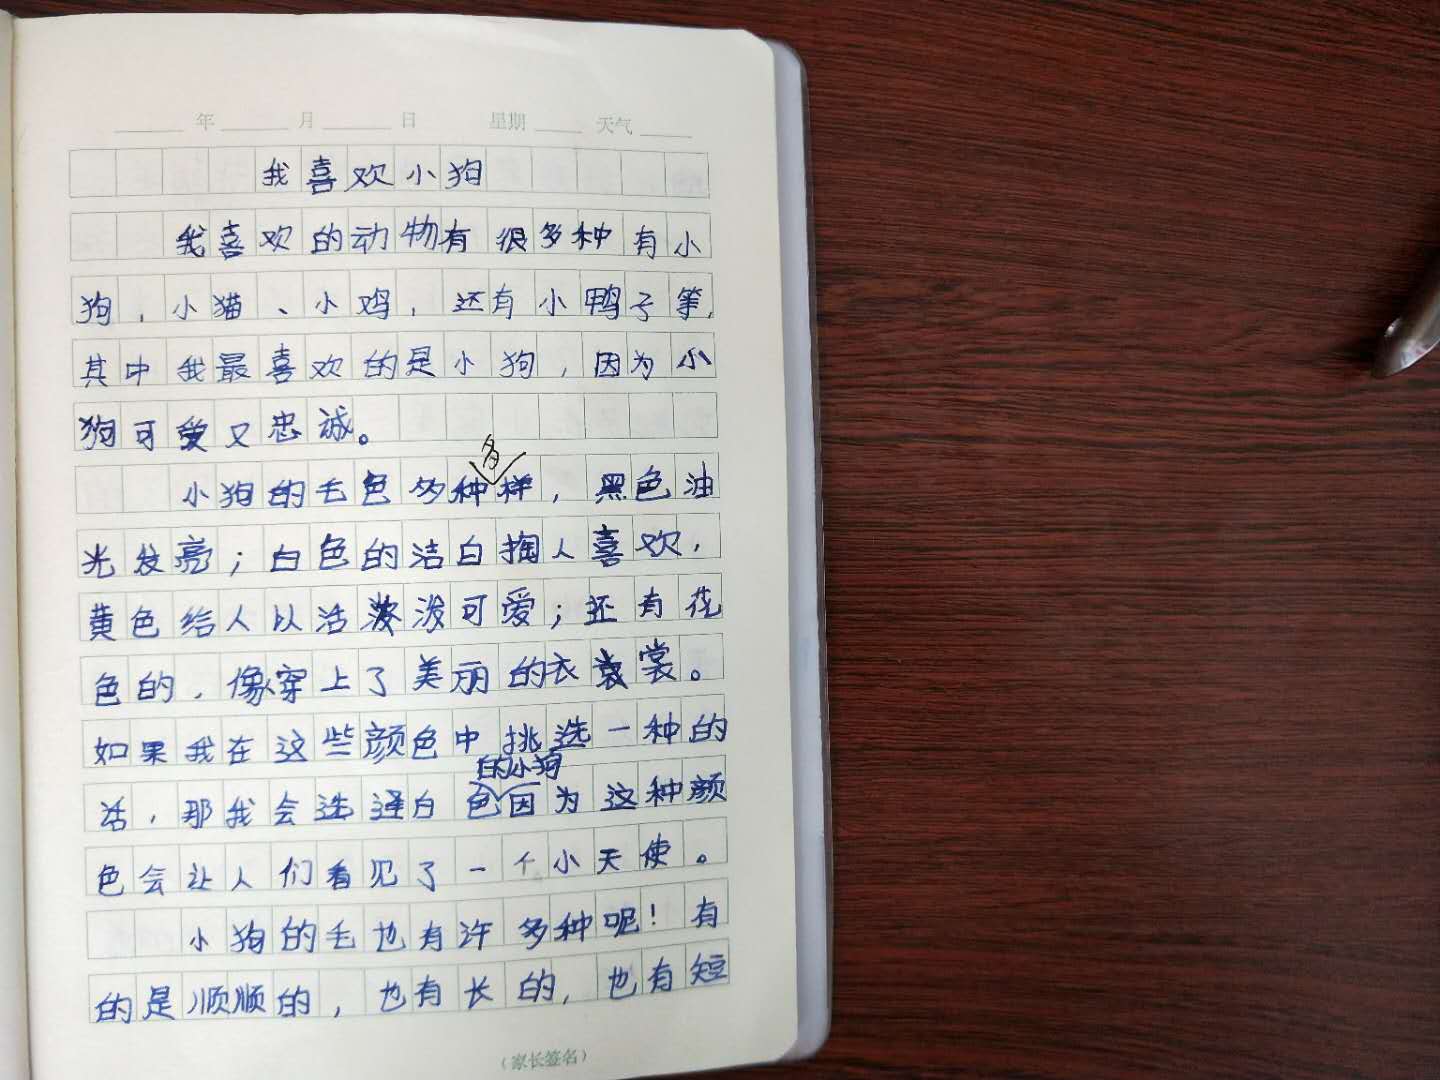 年 月 日 星期 天气
我喜欢小狗
我喜欢的动物有很多种有小
狗,小猫、小鸡,还有小鸭子等,
其中我最喜欢的是小狗,因为小
狗可爱又忠诚。
多
小狗的毛色多种样,黑色油
光发亮;白色的洁白掏人喜欢,
黄色给人以活泼可爱;还有花
色的,像穿上了美丽的衣裳。
如果我在这些颜色中挑选一种的
的小狗
话,那我会选择白色因为这种颜
色会让人们看见了一个小天使。
小狗的毛也有许多种呢!有
的是顺顺的,也有长的,也有短
(家长签名)